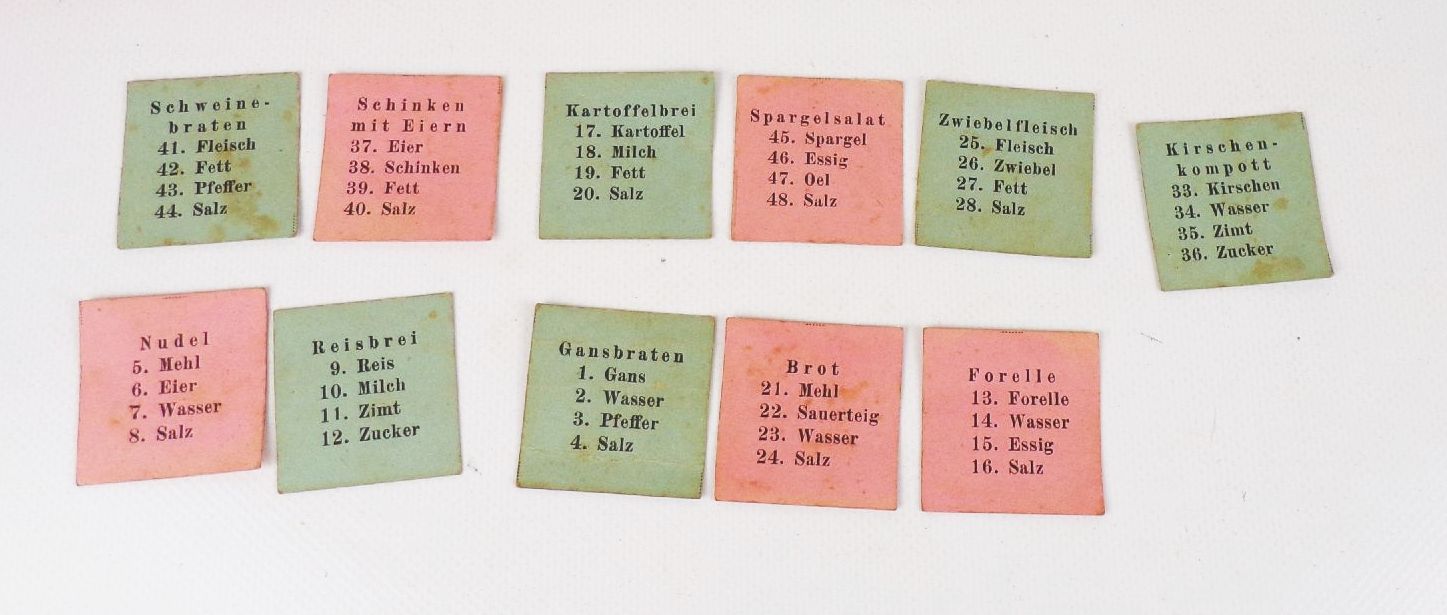 Schweine-
braten
41. Fleisch
42. Fett
43. Pfeffer
44. Salz
Schinken
mit Eiern
37. Eier
38. Schinken
39. Fett
40. Salz
Kartoffelbrei
17. Kartoffel
18. Milch
19. Fett
20. Salz
Spargelsalat
45. Spargel
46. Essig
47. Oel
48. Salz
Zwiebelfleisch
25. Fleisch
26. Zwiebel
27. Fett
28. Salz
Kirschen-
kompott
33. Kirschen
34. Wasser
35. Zimt
36. Zucker
Nudel
5. Mehl
6. Eier
7. Wasser
8. Salz
Reisbrei
9. Reis
10. Milch
11. Zimt
12. Zucker
Gansbraten
1. Gans
2. Wasser
3. Pfeffer
4. Salz
Brot
21. Mehl
22. Sauerteig
23. Wasser
24. Salz
Forelle
13. Forelle
14. Wasser
15. Essig
16. Salz